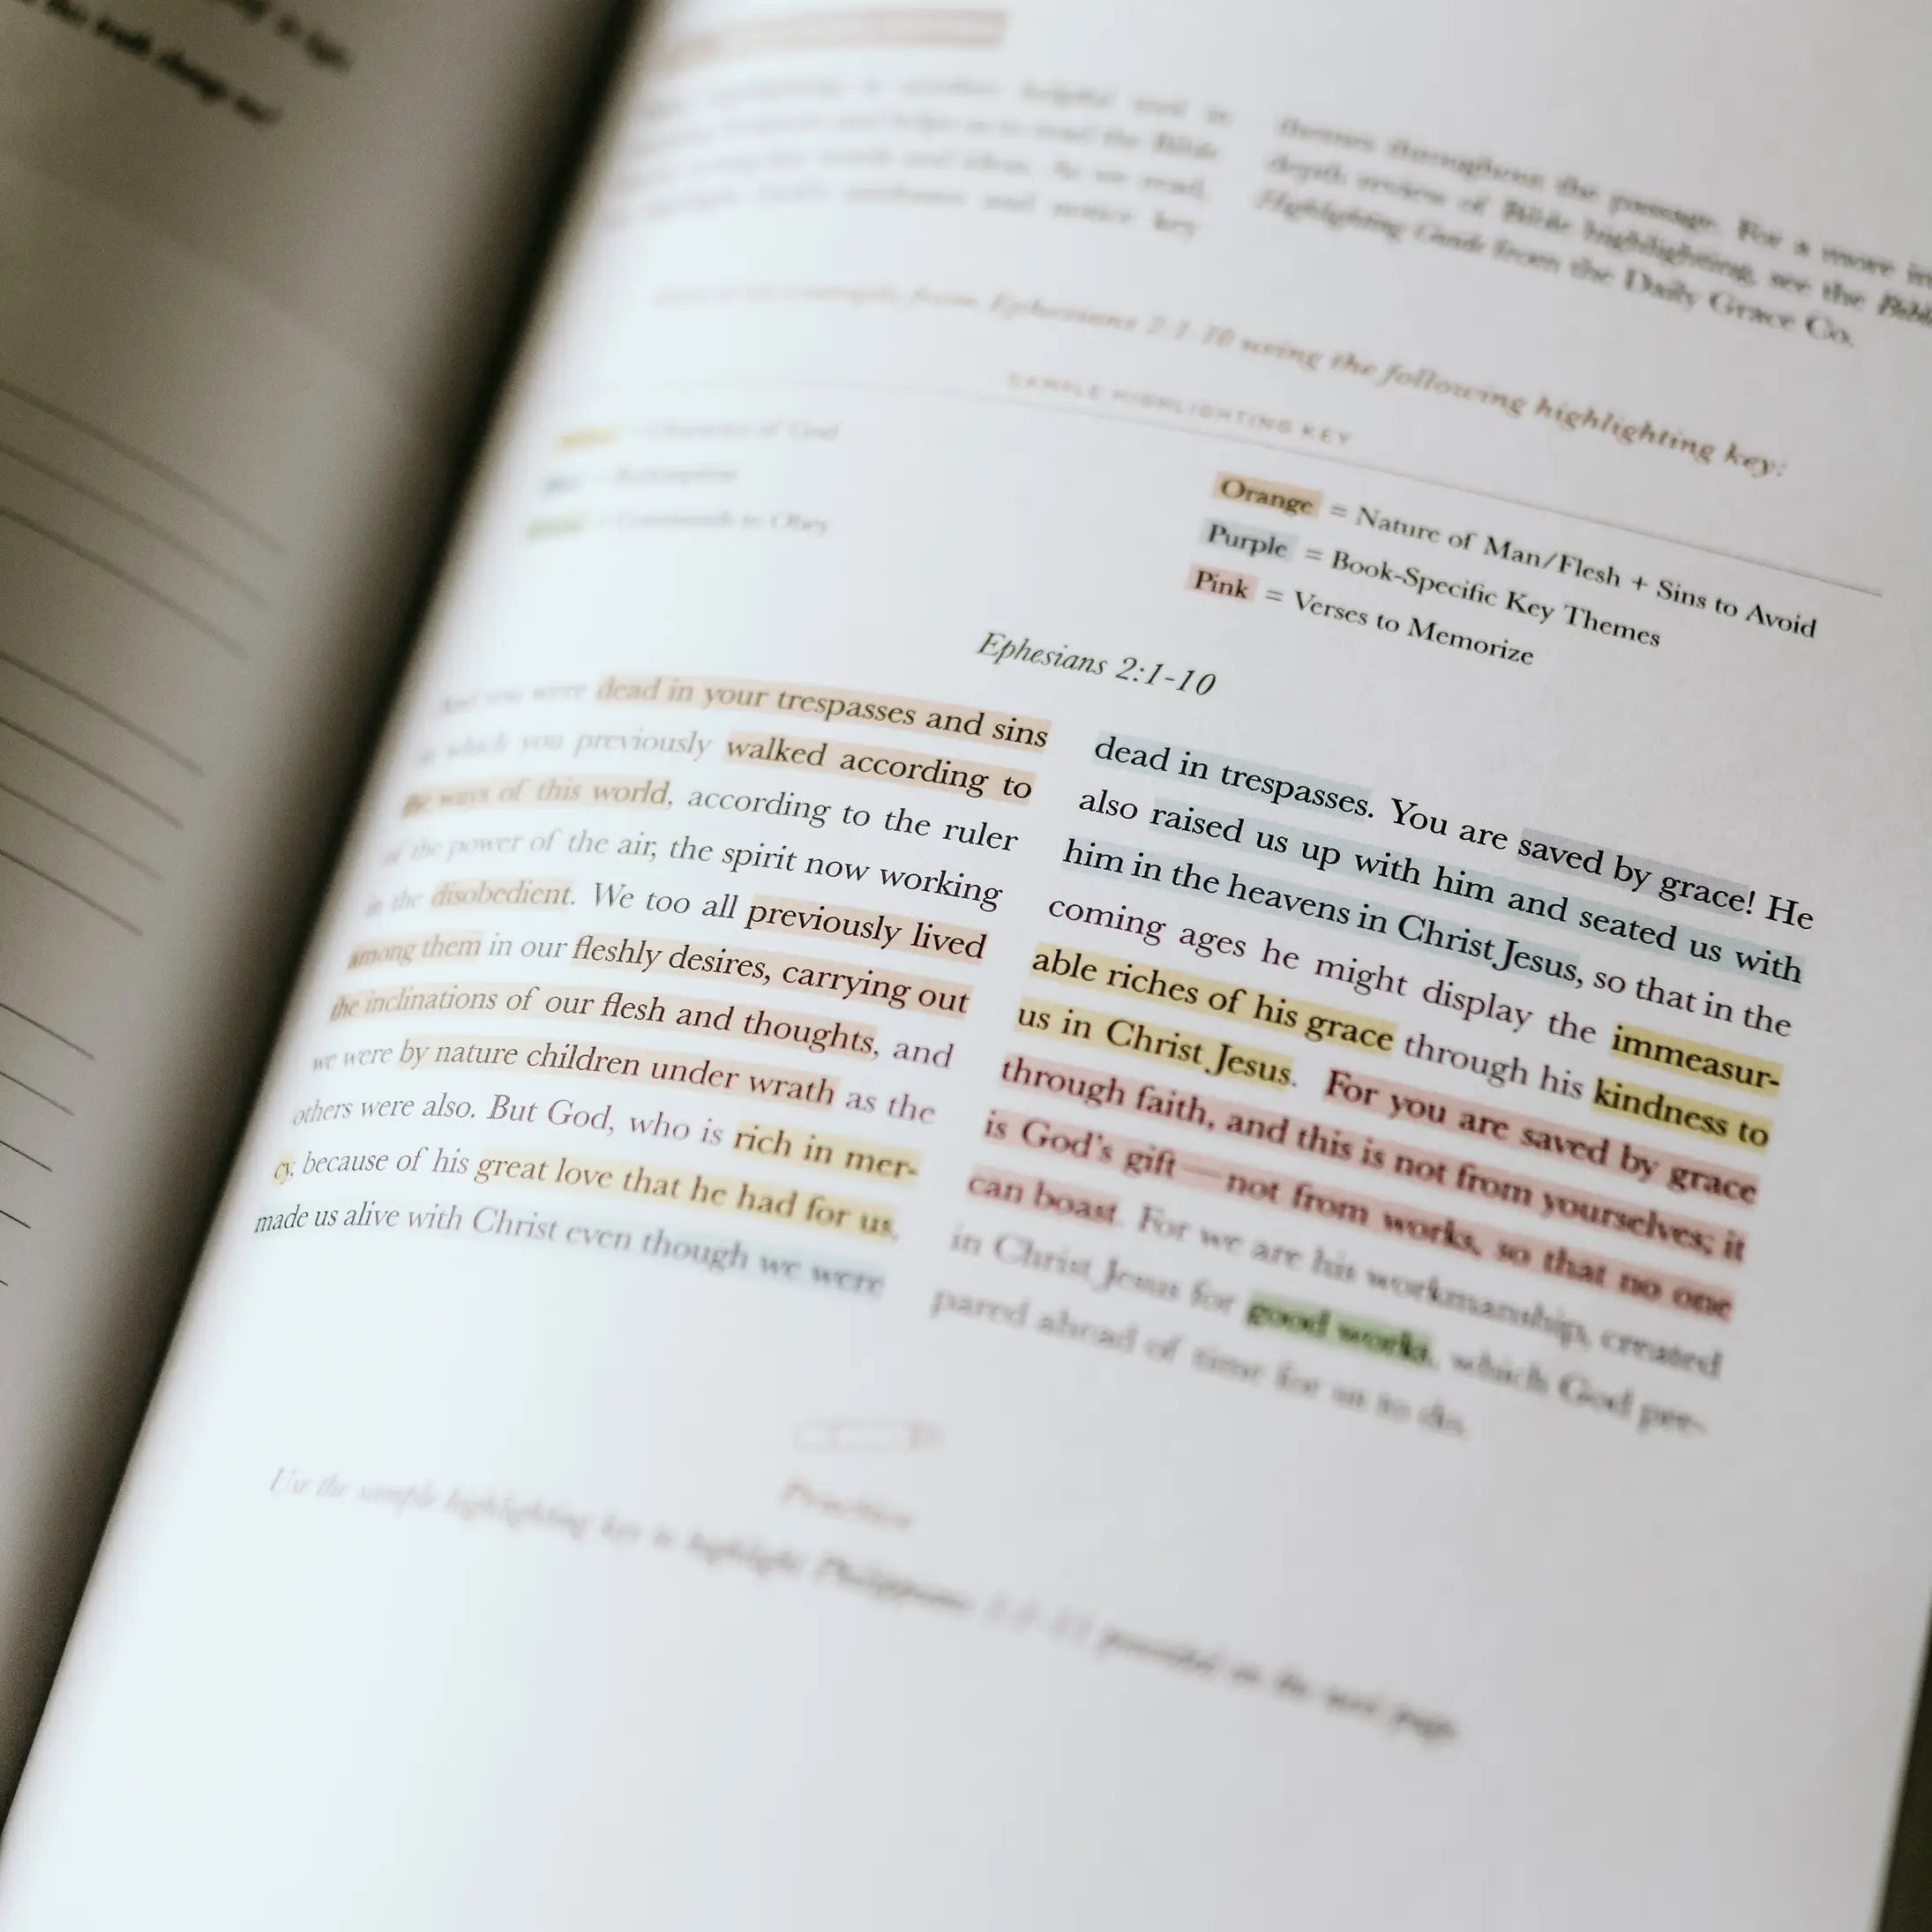 this truth change me?
helpful tool in
to read the Bible
words and ideas. As we read,
God's attributes and notice key
themes throughout the passage. For a more in
depth review of Bible highlighting, see the Bible
Highlighting Guide from the Daily Grace Co.
example from Ephesians 2:1-10 using the following highlighting key:
SAMPLE HIGHLIGHTING KEY
= Character of God
= Redemption
= Commands to Obey
Orange = Nature of Man/Flesh + Sins to Avoid
Purple = Book-Specific Key Themes
Pink = Verses to Memorize
Ephesians 2:1-10
And you were dead in your trespasses and sins
in which you previously walked according to
the ways of this world, according to the ruler
of the power of the air, the spirit now working
in the disobedient. We too all previously lived
among them in our fleshly desires, carrying out
the inclinations of our flesh and thoughts, and
we were by nature children under wrath as the
others were also. But God, who is rich in mer-
cy, because of his great love that he had for us,
made us alive with Christ even though we were
dead in trespasses. You are saved by grace! He
also raised us up with him and seated us with
him in the heavens in Christ Jesus, so that in the
coming ages he might display the immeasur-
able riches of his grace through his kindness to
us in Christ Jesus. For you are saved by grace
through faith, and this is not from yourselves; it
is God's gift—not from works, so that no one
can boast. For we are his workmanship, created
in Christ Jesus for good works, which God pre-
pared ahead of time for us to do.
Practice
Use the sample highlighting key to highlight Philippians provided on the next page.